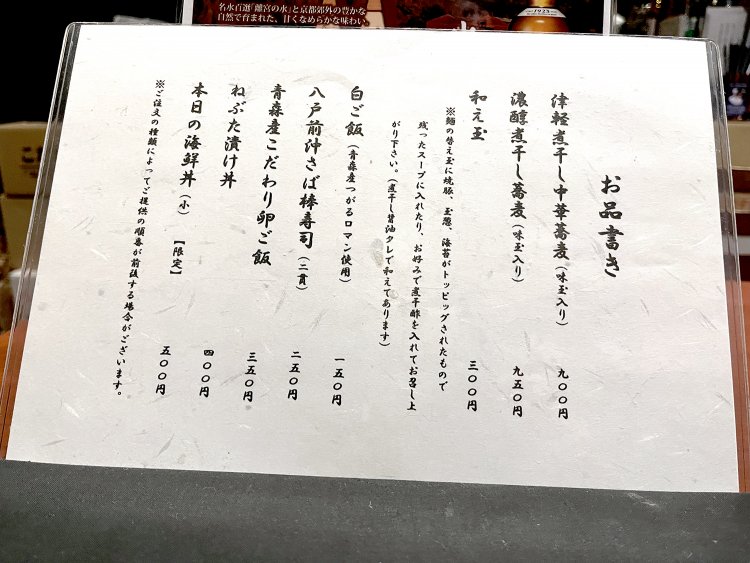 名水百選「離宮の水」と京都郊外の豊かな
自然で育まれた、甘くなめらかな味わい
1923
お品書き
津軽煮干し中華蕎麦(味玉入り) 九〇〇円
濃醇煮干し蕎麦(味玉入り) 九五〇円
和え玉 三〇〇円
※麺の替え玉に焼豚、玉葱、海苔がトッピングされたもので
残ったスープに入れたり、お好みで煮干酢を入れてお召し上
がり下さい。(煮干し醤油タレで和えてあります)
白ご飯(青森産つがるロマン使用) 一五〇円
八戸前沖さば棒寿司(二貫) 二五〇円
青森産こだわり卵ご飯 三五〇円
ねぶた漬け丼 四〇〇円
本日の海鮮丼(小)【限定】 五〇〇円
※ご注文の種類によってご提供の順番が前後する場合がございます。